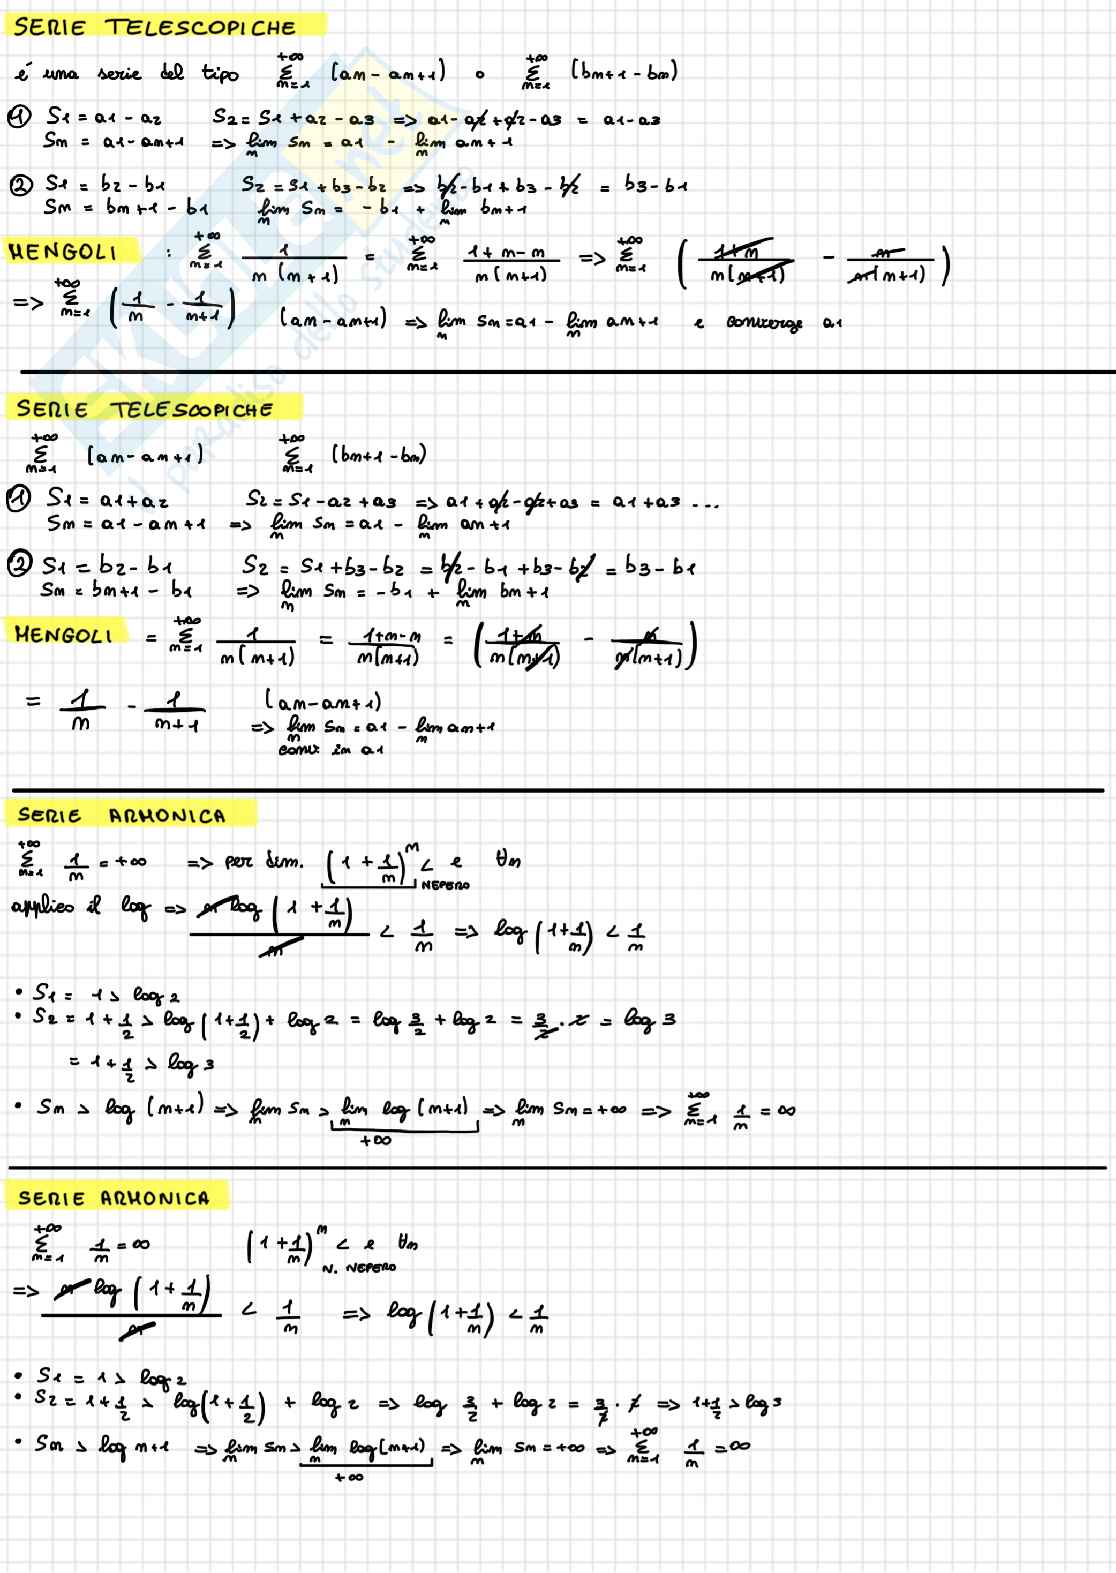 SERIE TELESCOPICHE
é una serie del tipo +∞ Σ m=1 (am - am+1) o +∞ Σ m=1 (bm+1 - bm)
① S1 = a1 - a2 S2 = S1 + a2 - a3 => a1 - a2 + a2 - a3 = a1 - a3
Sm = a1 - am+1 => lim m Sm = a1 - lim m am+1
② S1 = b2 - b1 S2 = S1 + b3 - b2 => b2 - b1 + b3 - b2 = b3 - b1
Sm = bm+1 - b1 lim m Sm = - b1 + lim m bm+1
MENGOLI : +∞ Σ m=1 1/m(m+1) = +∞ Σ m=1 1+m-m/m(m+1) => +∞ Σ m=1 (1+m/m(m+1) - m/m(m+1))
=> +∞ Σ m=1 (1/m - 1/m+1) (am - am+1) => lim m Sm = a1 - lim m am+1 e converge a1
SERIE TELESCOPICHE
+∞ Σ m=1 (am - am+1) +∞ Σ m=1 (bm+1 - bm)
① S1 = a1 + a2 S2 = S1 - a2 + a3 => a1 + a2 - a2 + a3 = a1 + a3 ...
Sm = a1 - am+1 => lim m Sm = a1 - lim m am+1
② S1 = b2 - b1 S2 = S1 + b3 - b2 = b2 - b1 + b3 - b2 = b3 - b1
Sm = bm+1 - b1 => lim m Sm = - b1 + lim m bm+1
MENGOLI = +∞ Σ m=1 1/m(m+1) = 1+m-m/m(m+1) = (1+m/m(m+1) - m/m(m+1))
= 1/m - 1/m+1 (am - am+1)
=> lim m Sm = a1 - lim m am+1
conv in a1
SERIE ARMONICA
+∞ Σ m=1 1/m = +∞ => per dim. (1 + 1/m)^m < e ∀n
NEPERO
applico il log => m log (1 + 1/m)/m < 1/m => log (1+1/m) < 1/m
• S1 = 1 > log 2
• S2 = 1 + 1/2 > log (1+1/2) + log 2 = log 3/2 + log 2 = 3/2 · 2 = log 3
= 1 + 1/2 > log 3
• Sm > log (m+1) => lim m Sm > lim m log (m+1) => lim m Sm = +∞ => +∞ Σ m=1 1/m = ∞
+∞
SERIE ARMONICA
+∞ Σ m=1 1/m = ∞ (1 + 1/m)^m < e ∀n
N. NEPERO
=> m log (1 + 1/m)/m < 1/m => log (1+1/m) < 1/m
• S1 = 1 > log 2
• S2 = 1 + 1/2 > log(1 + 1/2) + log 2 => log 3/2 + log 2 = 3/2 · 2 => 1+1/2 > log 3
• Sm > log m+1 => lim m Sm > lim m log (m+1) => lim m Sm = +∞ => +∞ Σ m=1 1/m = ∞
+∞